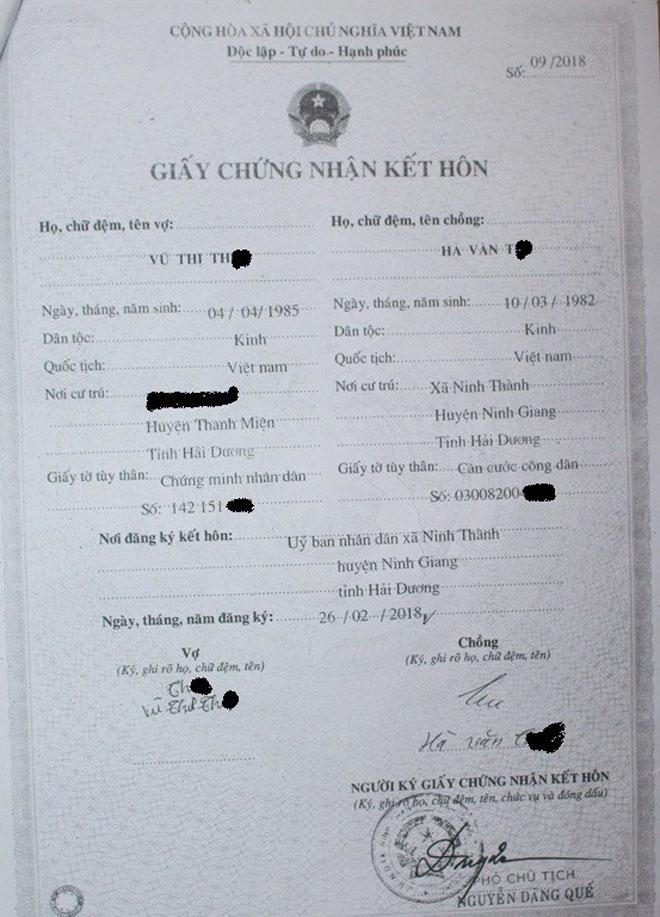 CỘNG HÒA XÃ HỘI CHỦ NGHĨA VIỆT NAM
Độc lập - Tự do - Hạnh phúc
Số: 09 /2018
GIẤY CHỨNG NHẬN KẾT HÔN
Họ, chữ đệm, tên vợ:
VŨ THỊ TH
Họ, chữ đệm, tên chồng:
HÀ VĂN T
Ngày, tháng, năm sinh: 04 / 04/ 1985
Ngày, tháng, năm sinh: 10 / 03 / 1982
Dân tộc: Kinh
Dân tộc: Kinh
Quốc tịch: Việt nam
Quốc tịch: Việt nam
Nơi cư trú:
Huyện Thanh Miện
Tỉnh Hải Dương
Nơi cư trú: Xã Ninh Thành
Huyện Ninh Giang
Tỉnh Hải Dương
Giấy tờ tùy thân: Chứng minh nhân dân
Số: 142 151
Giấy tờ tùy thân: Căn cước công dân
Số: 03008200
Nơi đăng ký kết hôn: Uỷ ban nhân dân xã Ninh Thành
huyện Ninh Giang
tỉnh Hải Dương
Ngày, tháng, năm đăng ký: 26 / 02 / 2018
Vợ
(Ký, ghi rõ họ, chữ đệm, tên)
Th
Vũ Thị Th
Chồng
(Ký, ghi rõ họ, chữ đệm, tên)
Hà Văn T
NGƯỜI KÝ GIẤY CHỨNG NHẬN KẾT HÔN
(Ký, ghi rõ họ, chữ đệm, tên, chức vụ và đóng dấu)
PHÓ CHỦ TỊCH
NGUYỄN ĐĂNG QUẾ